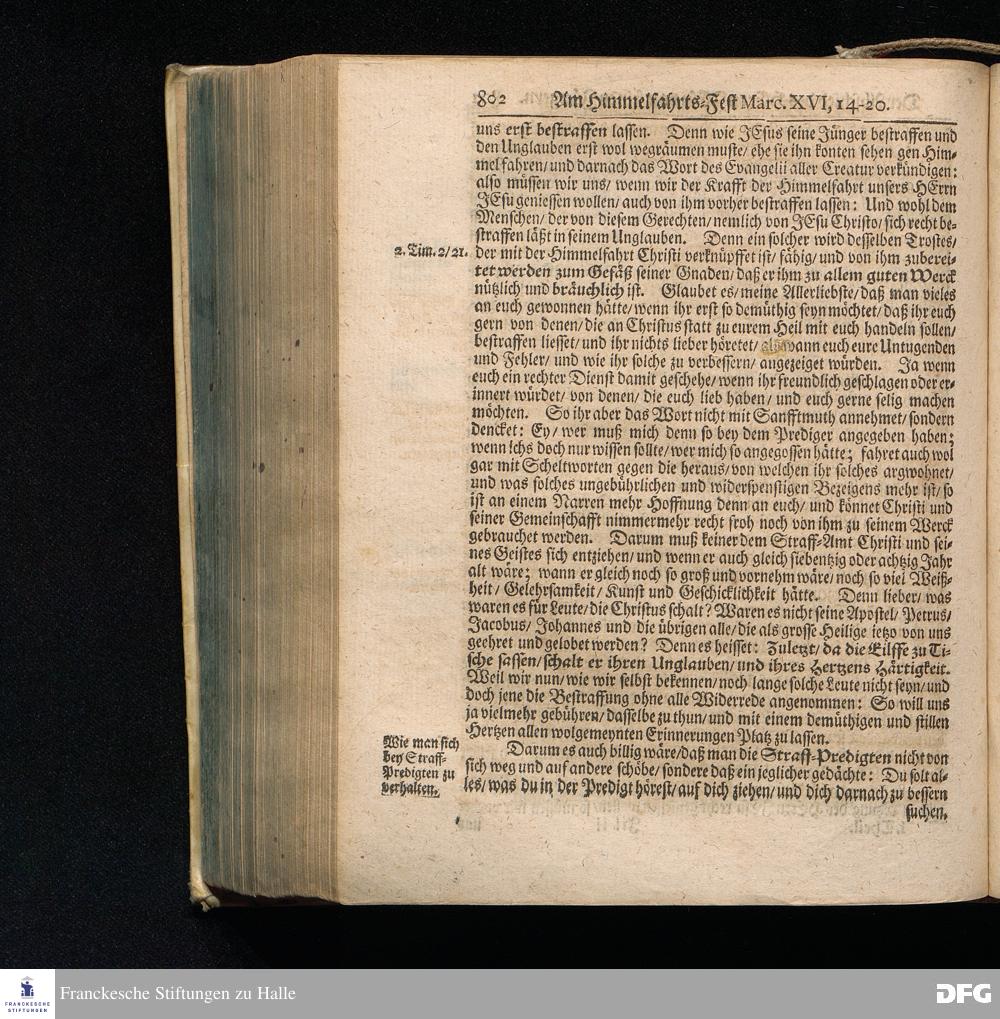 802 Am Himmelfahrts-Fest Marc. XVI, 14-20.
uns erst bestraffen lassen. Denn wie JEsus seine Jünger bestraffen und
den Unglauben erst wol wegräumen muste/ ehe sie ihn konten sehen gen Him-
mel fahren/ und darnach das Wort des Evangelii aller Creatur verkündigen:
also müssen wir uns/ wenn wir der Krafft der Himmelfahrt unsers HErrn
JEsu geniessen wollen/ auch von ihm vorher bestraffen lassen: Und wohl dem
Menschen/ der von diesem Gerechten/ nemlich von JEsu Christo/ sich recht be-
straffen läßt in seinem Unglauben. Denn ein solcher wird desselben Trostes/
2. Tim. 2/ 21. der mit der Himmelfahrt Christi verknüpffet ist/ fähig/ und von ihm zuberei-
tet werden zum Gefäß seiner Gnaden/ daß er ihm zu allem guten Werck
nützlich und bräuchlich ist. Glaubet es/ meine Allerliebste/ daß man vieles
an euch gewonnen hätte/ wenn ihr erst so demüthig seyn möchtet/ daß ihr euch
gern von denen/ die an Christus statt zu eurem Heil mit euch handeln sollen/
bestraffen liesset/ und ihr nichts lieber höretet/ als wann euch eure Untugenden
und Fehler/ und wie ihr solche zu verbessern/ angezeiget würden. Ja wenn
euch ein rechter Dienst damit geschehe/ wenn ihr freundlich geschlagen oder er-
innert würdet/ von denen/ die euch lieb haben/ und euch gerne selig machen
möchten. So ihr aber das Wort nicht mit Sanfftmuth annehmet/ sondern
dencket: Ey/ wer muß mich denn so bey dem Prediger angegeben haben;
wenn ichs doch nur wissen sollte/ wer mich so angegossen hätte; fahret auch wol
gar mit Scheltworten gegen die heraus/ von welchen ihr solches argwohnet/
und was solches ungebührlichen und widerspenstigen Bezeigens mehr ist/ so
ist an einem Narren mehr Hoffnung denn an euch/ und könnet Christi und
seiner Gemeinschafft nimmermehr recht froh noch von ihm zu seinem Werck
gebrauchet werden. Darum muß keiner dem Straff-Amt Christi und sei-
nes Geistes sich entziehen/ und wenn er auch gleich siebentzig oder achtzig Jahr
alt wäre; wann er gleich noch so groß und vornehm wäre/ noch so viel Weiß-
heit/ Gelehrsamkeit/ Kunst und Geschicklichkeit hätte. Denn lieber/ was
waren es für Leute/ die Christus schalt? Waren es nicht seine Apostel/ Petrus/
Jacobus/ Johannes und die übrigen alle/ die als grosse Heilige ietzo von uns
geehret und gelobet werden? Denn es heisset: Zuletzt/ da die Eilffe zu Ti-
sche sassen/ schalt er ihren Unglauben/ und ihres Hertzens Härtigkeit.
Weil wir nun/ wie wir selbst bekennen/ noch lange solche Leute nicht seyn/ und
doch jene die Bestraffung ohne alle Widerrede angenommen: So will uns
ja vielmehr gebühren/ dasselbe zu thun/ und mit einem demüthigen und stillen
Hertzen allen wolgemeynten Erinnerungen Platz zu lassen.
Wie man sich
bey Straff-
Predigten zu
verhalten.
Darum es auch billig wäre/ daß man die Straff-Predigten nicht von
sich weg und auf andere schöbe/ sondere daß ein jeglicher gedächte: Du solt al-
les/ was du in der Predigt hörest/ auf dich ziehen/ und dich darnach zu bessern
suchen.
FRANCKESCHE
STIFTUNGEN
Franckesche Stiftungen zu Halle
DFG